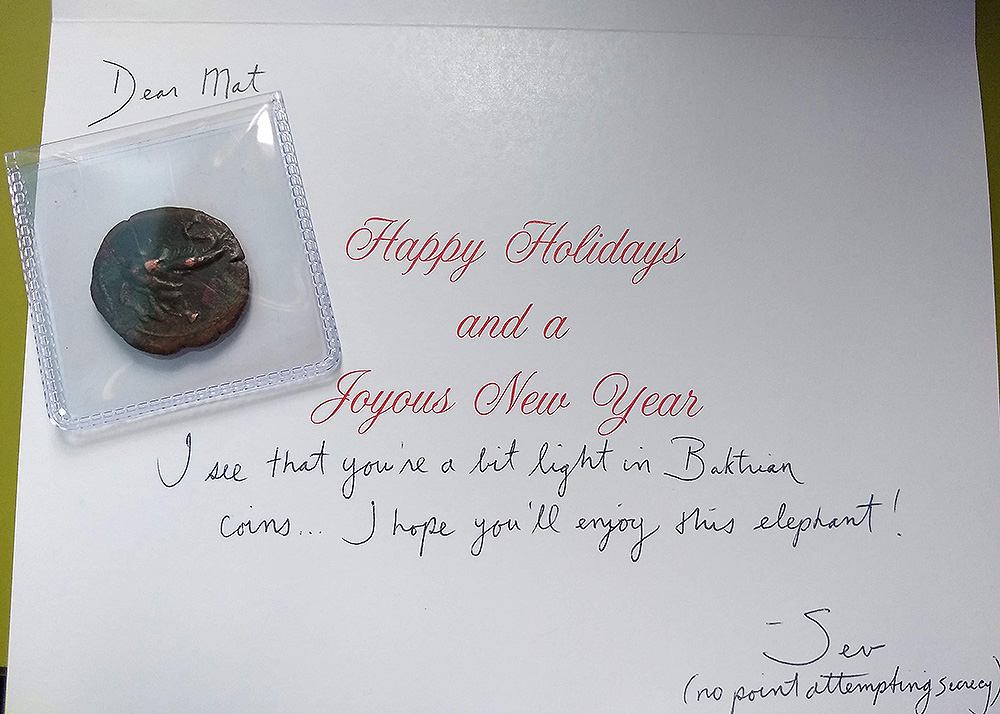 Dear Mat
Happy Holidays
and a
Joyous New Year
I see that you're a bit light in Baktrian
coins... I hope you'll enjoy this elephant!
-Sev
(no point attempting secrecy)